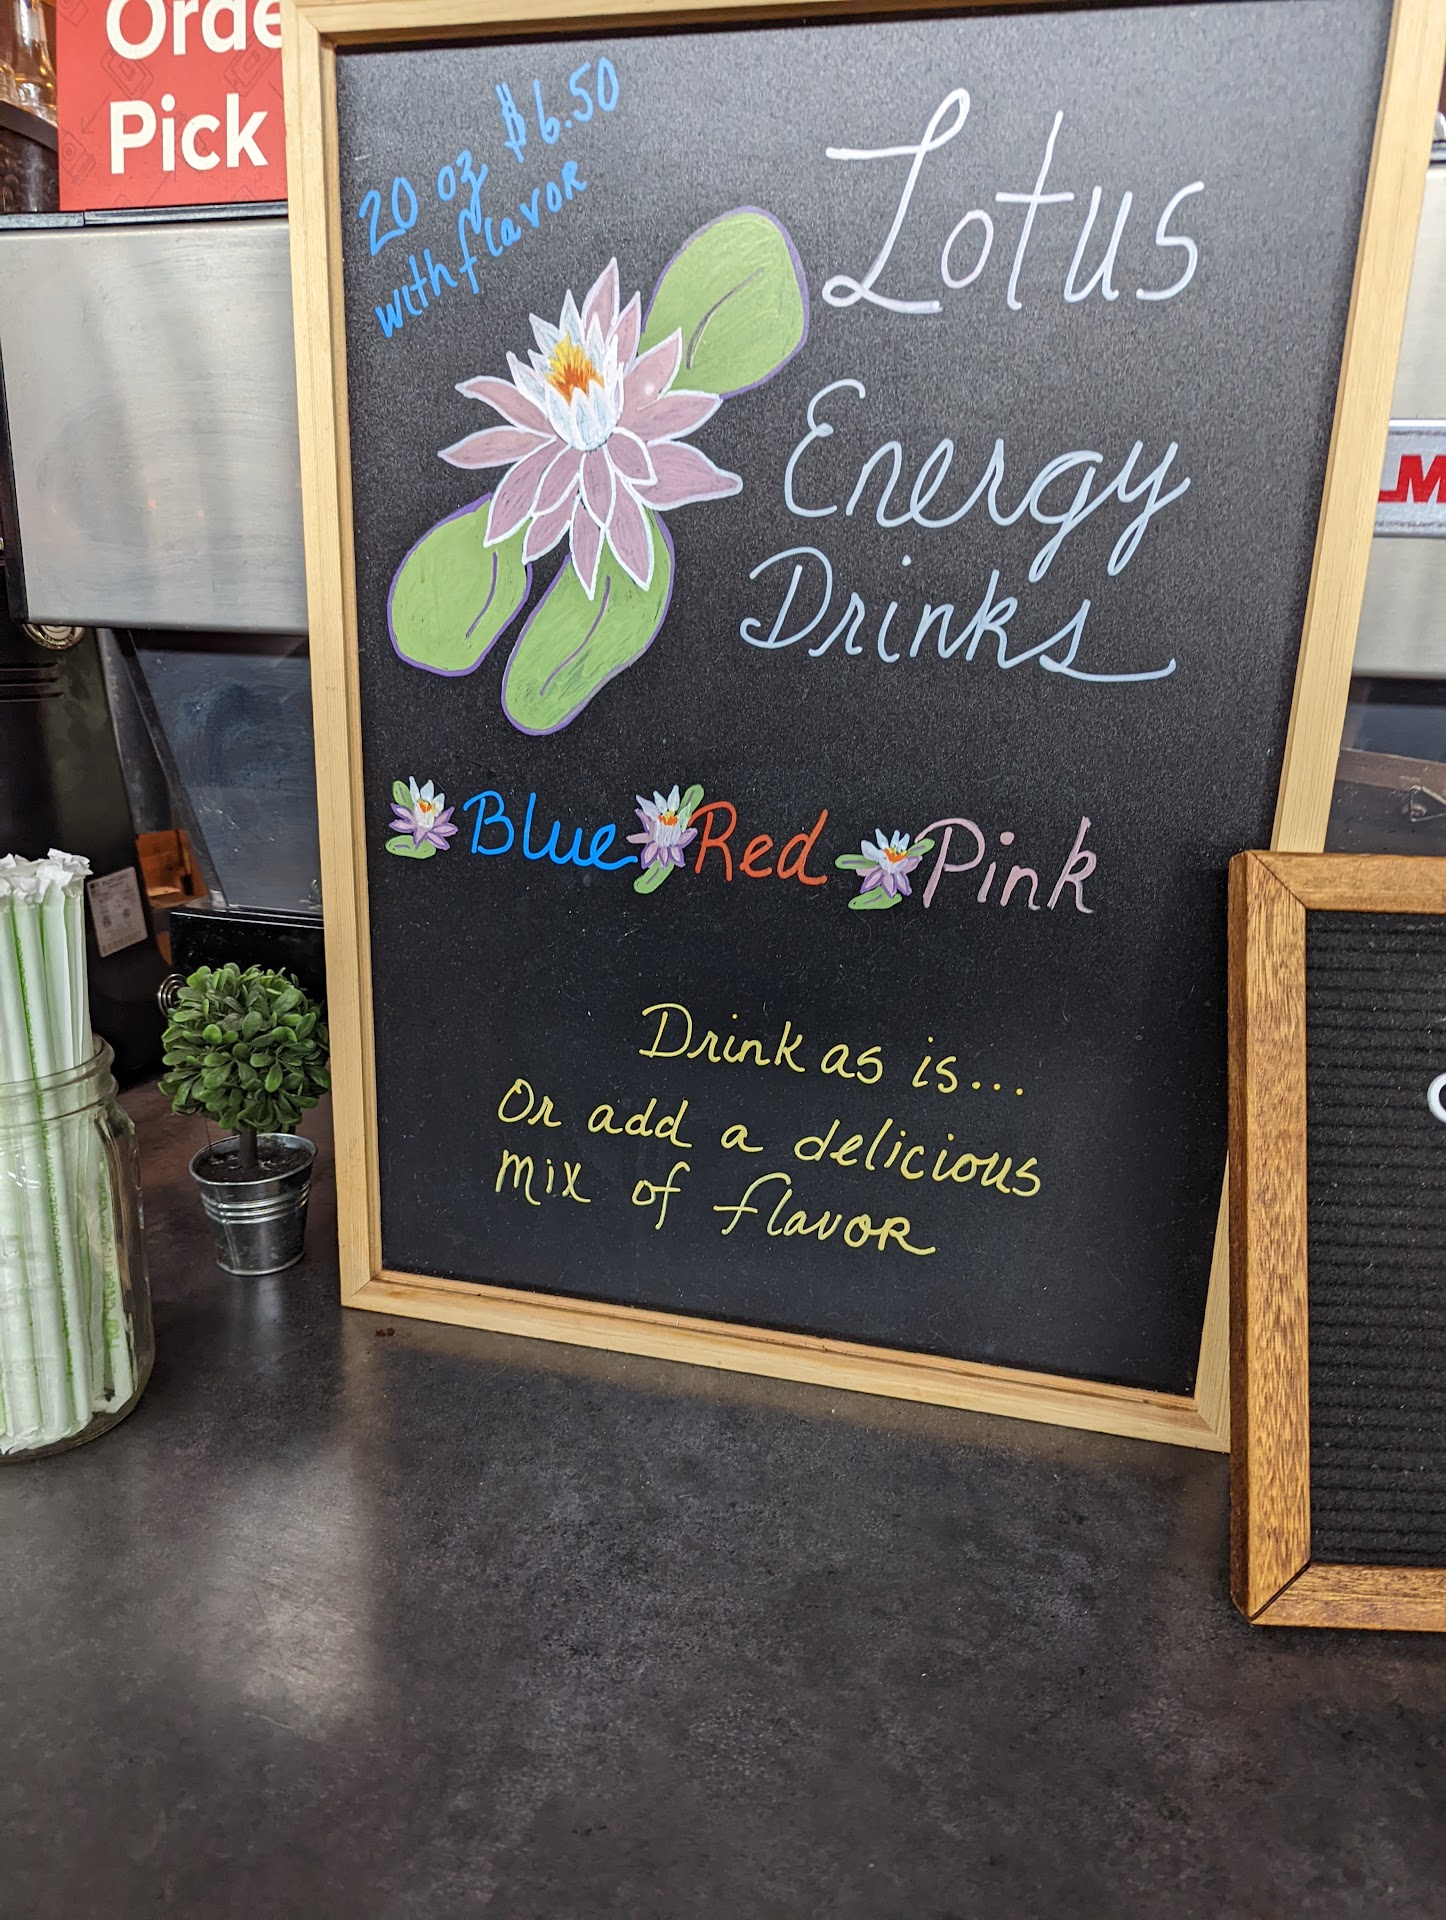 Orde
Pick
20 oz $6.50
with flavor
Lotus
Energy
Drinks
Blue Red Pink
Drink as is...
Or add a delicious
mix of flavor
M